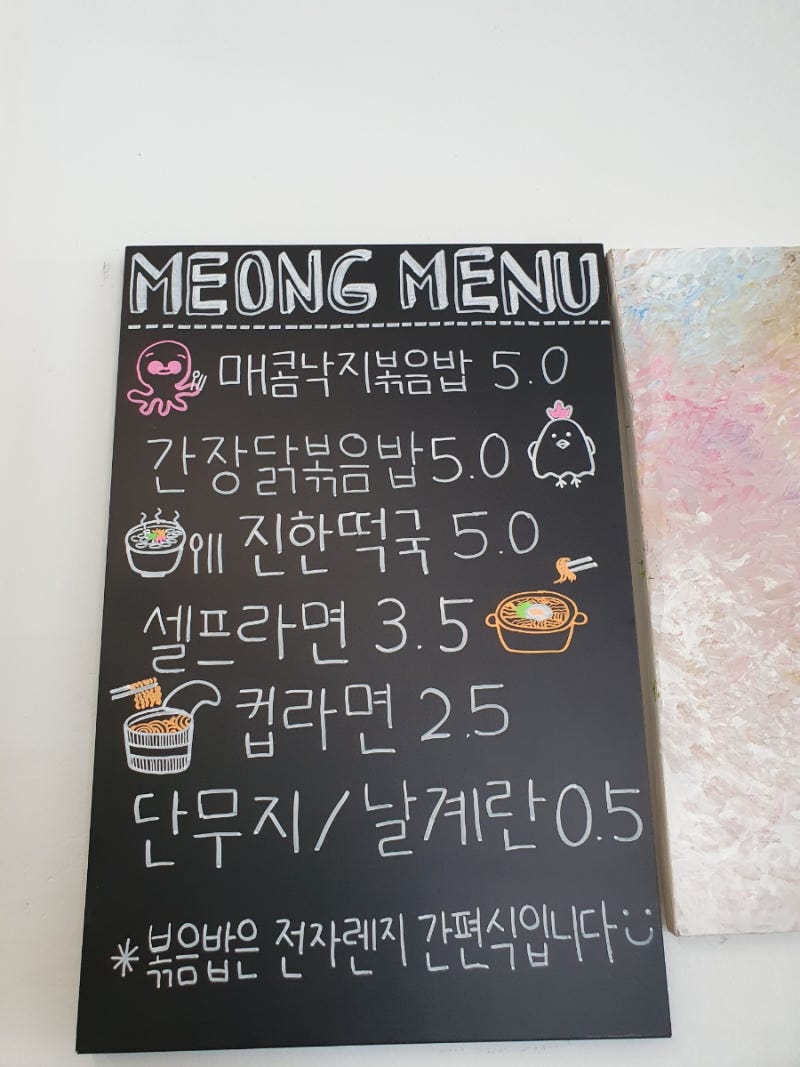 MEONG MENU
매콤낙지볶음밥 5.0
간장닭볶음밥 5.0
진한떡국 5.0
셀프라면 3.5
컵라면 2.5
단무지/날계란 0.5
*볶음밥은 전자렌지 간편식입니다